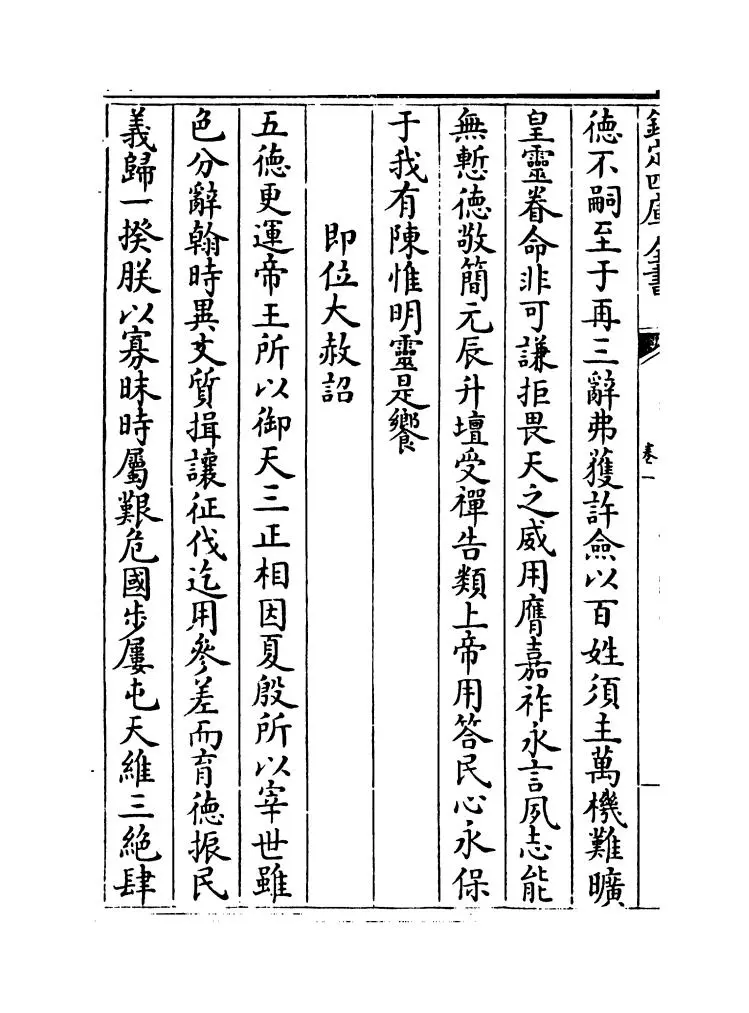 欽定四庫全書
卷一
德不嗣至于再三辭弗獲許僉以百姓須主萬機難曠
皇靈眷命非可謙拒畏天之威用膺嘉祚永言夙志能
無慙德敬簡元辰升壇受禪告類上帝用答民心永保
于我有陳惟明靈是饗
即位大赦詔
五德更運帝王所以御天三正相因夏殷所以宰世雖
色分辭翰時異文質揖讓征伐迄用參差而育德振民
義歸一揆朕以寡昧時屬艱危國步屢屯天維三絶肆